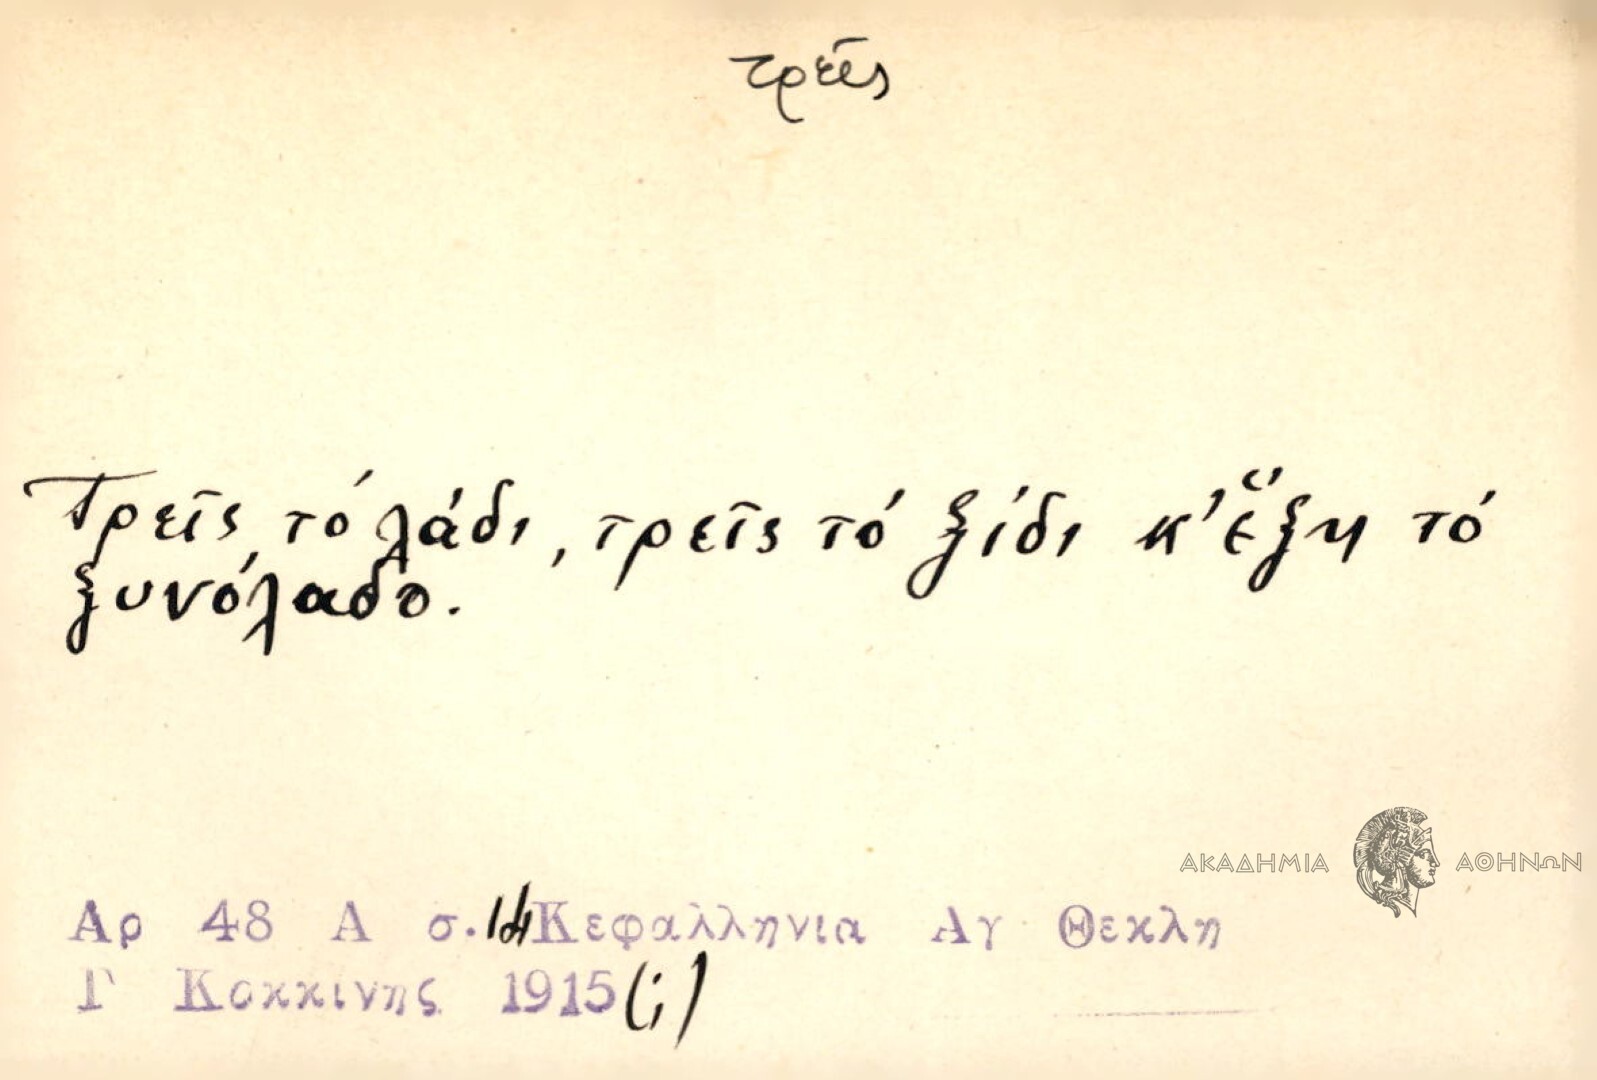 τρεῖς
Τρεῖς, τό λάδι, τρεῖς τό ξίδι κ' ἕξη τό
ξυνόλαδο.
ΑΚΑΔΗΜΙΑ ΑΘΗΝΩΝ
Αρ 48 Α σ. 14 Κεφαλληνια Αγ Θεκλη
Γ Κοκκινης 1915 (;)